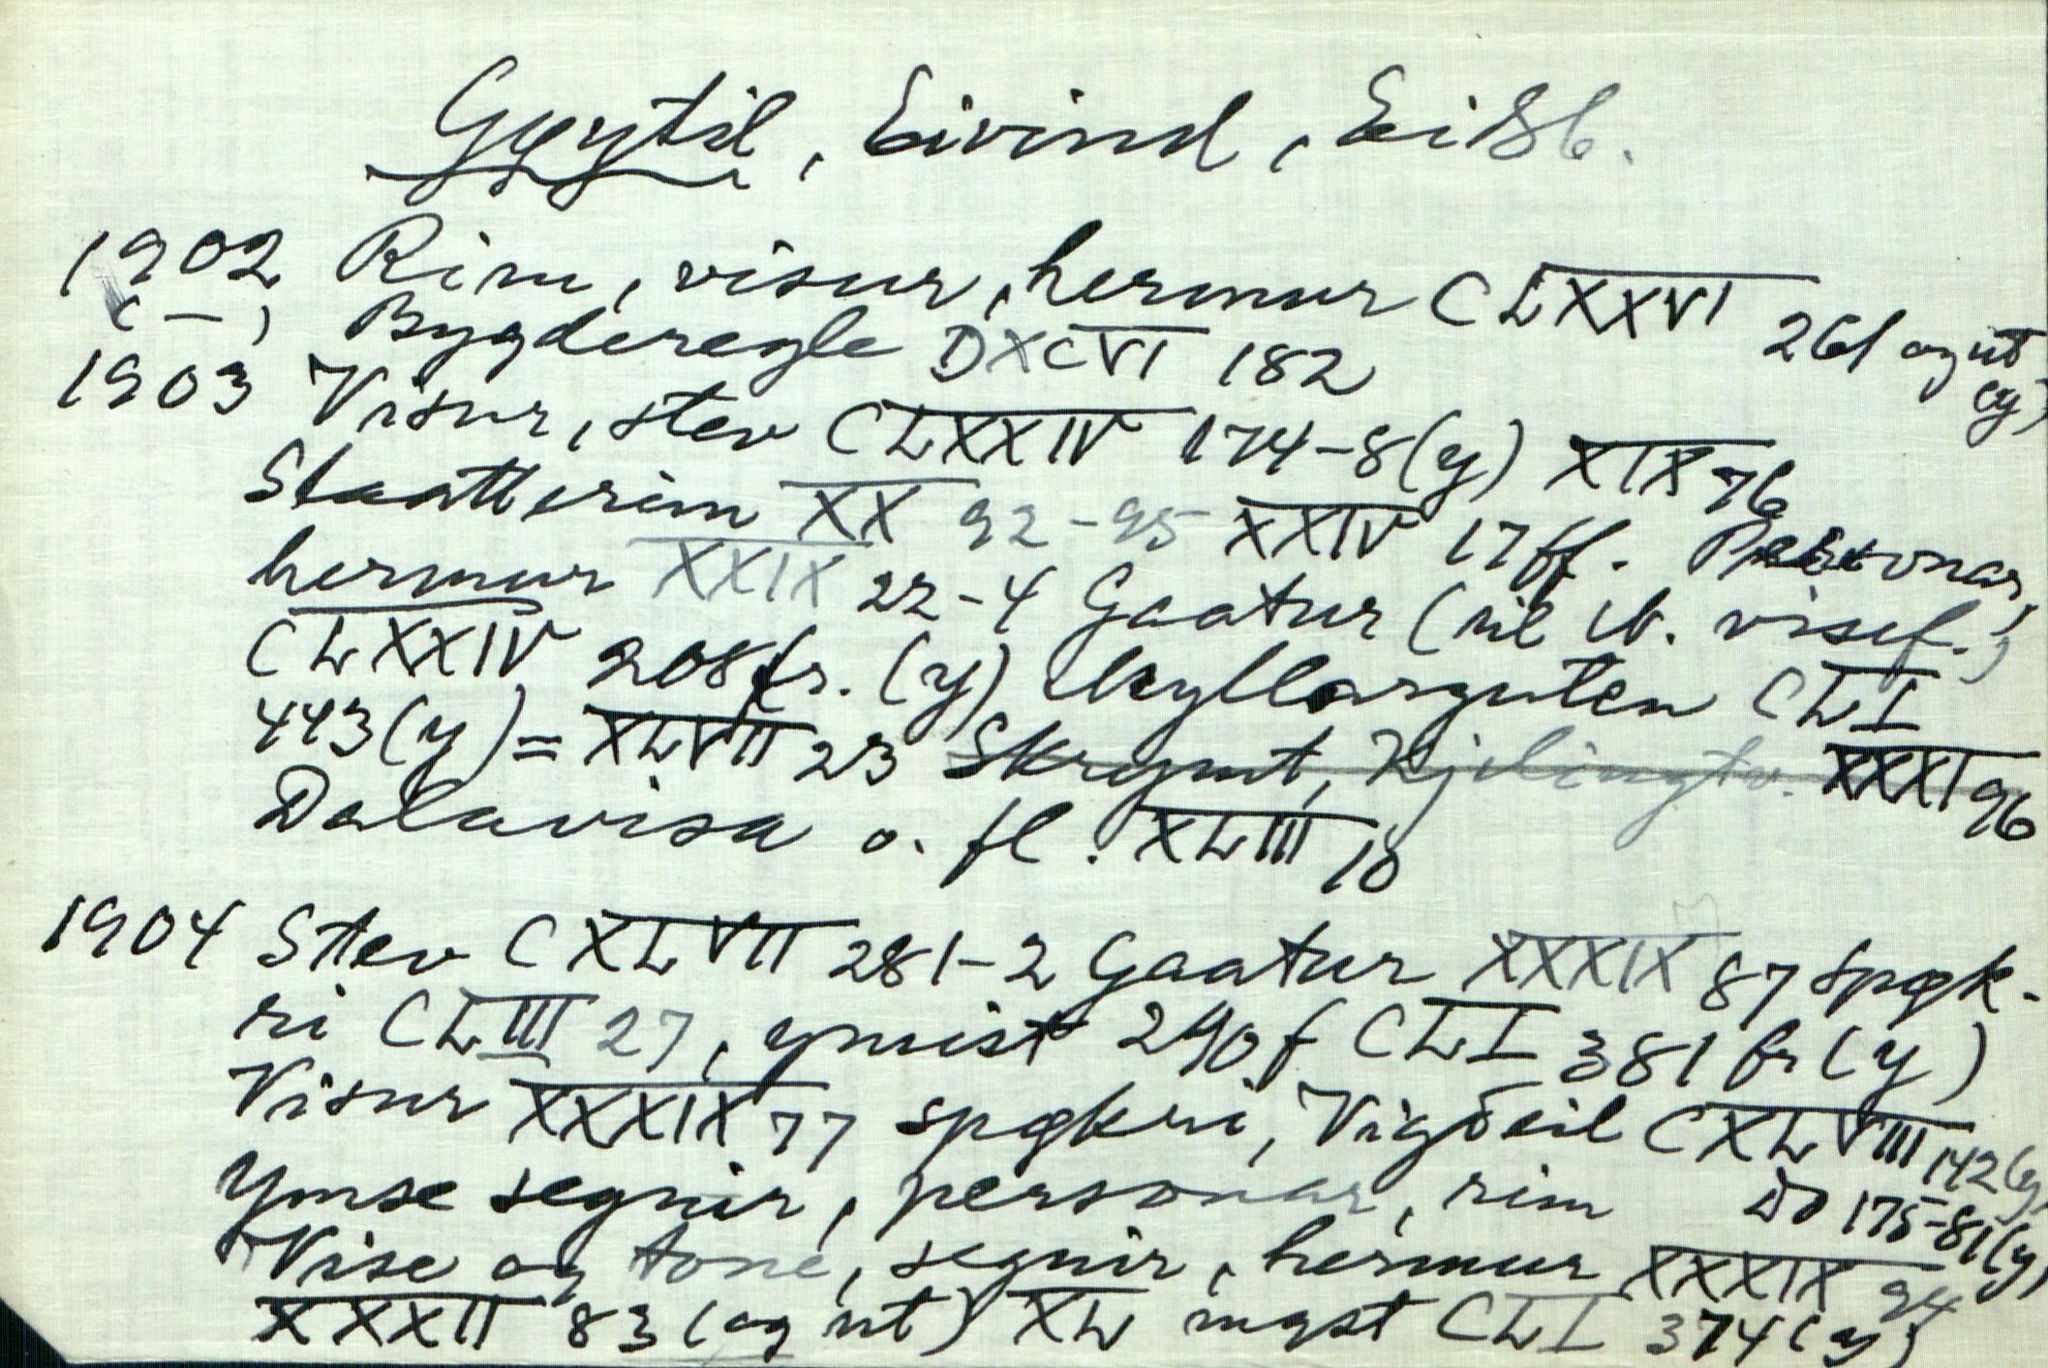 Gyytil, Eivind, Ei 86.
1902 Rim, visur, hermur CLXXVI 261 og ut (y)
(—) Bygderegle DXCVI 182
1903 Visur, stev CLXXIV 174-8 (y) XIX 76
Slaatterim XX 92-95 XXIV 17 ff. Personar,
hermur XXIX 22-4 Gaatur (til ib. visef.)
CLXXIV 208 fr. (y) Myllarguten CLI
443 (y) = XLVII 23 Skrymt, Kjelingtv. XXXI 96
Dalavisa o. fl. XLIII 10
1904 Stev CXLVII 281-2 Gaatur XXXIX 87 spgk-
ri CLIII 27, ymist 290 f CLI 381 fr (y)
Visur XXXIX 77 spgkri, Vigdeil CXLVIII 142 (y)
Ymse segnir, personar, rim Do 175-81 (y)
Vise og tone, segnir, hermur XXXIX 94
XXXII 83 (og ut) XL mgst CLI 374 (y)